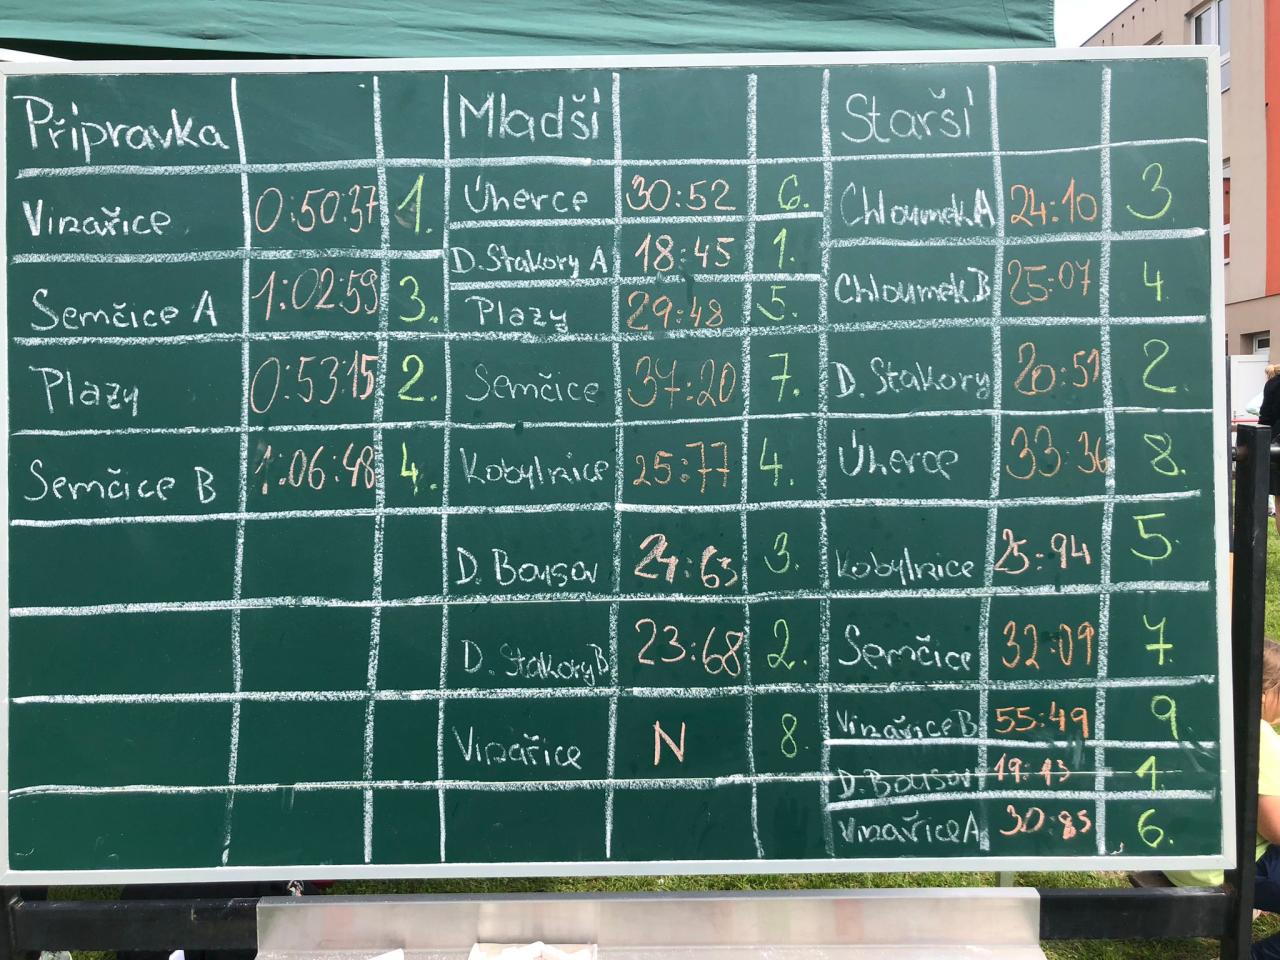 Přípravka
Vinařice 0:50:37 1.
Semčice A 1:02:59 3.
Plazy 0:53:15 2.
Semčice B 1:06:48 4.
Mladší
Úherce 30:52 6.
D. Stakory A 18:45 1.
Plazy 29:48 5.
Semčice 37:20 7.
Kobylnice 25:77 4.
D. Bousov 24:63 3.
D. Stakory B 23:68 2.
Vinařice N 8.
Starší
Chloumek A 24:10 3
Chloumek B 25:07 4
D. Stakory 20:51 2.
Úherce 33:36 8.
Kobylnice 25:94 5.
Semčice 32:09 7.
Vinařice B 55:49 9
D. Bousov 19:43 1
Vinařice A 30:85 6.